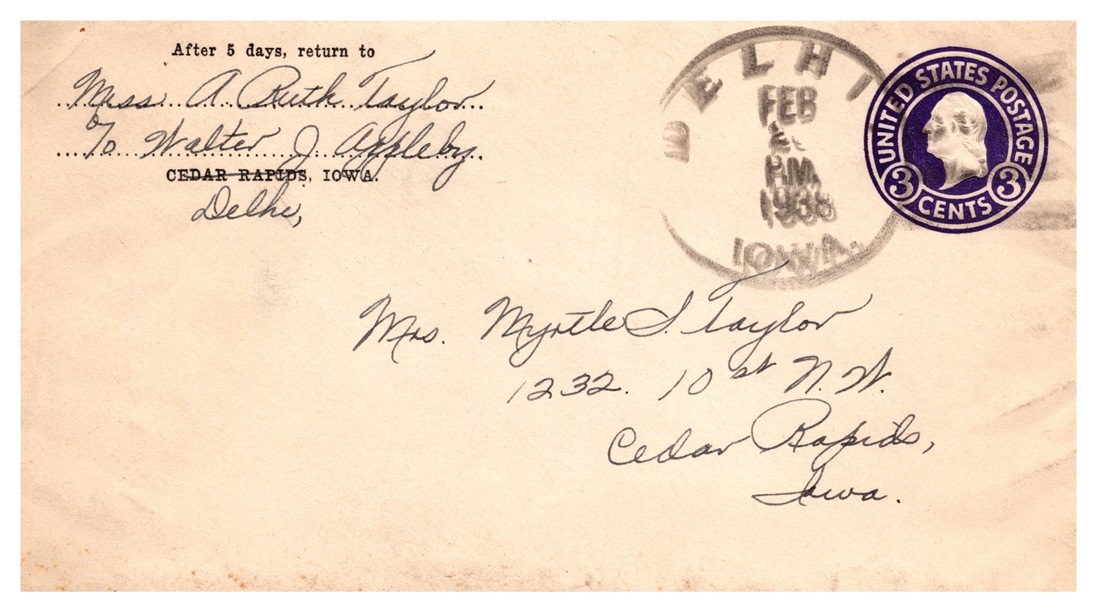 After 5 days, return to
Miss A Ruth Taylor
℅ Walter J Appleby
CEDAR RAPIDS, IOWA.
Delhi,
DELHI
FEB
P.M.
1938
IOWA.
UNITED STATES POSTAGE
3 CENTS 3
Mrs. Myrtle S. Taylor
1232. 10 st N.W.
Cedar Rapids,
Iowa.